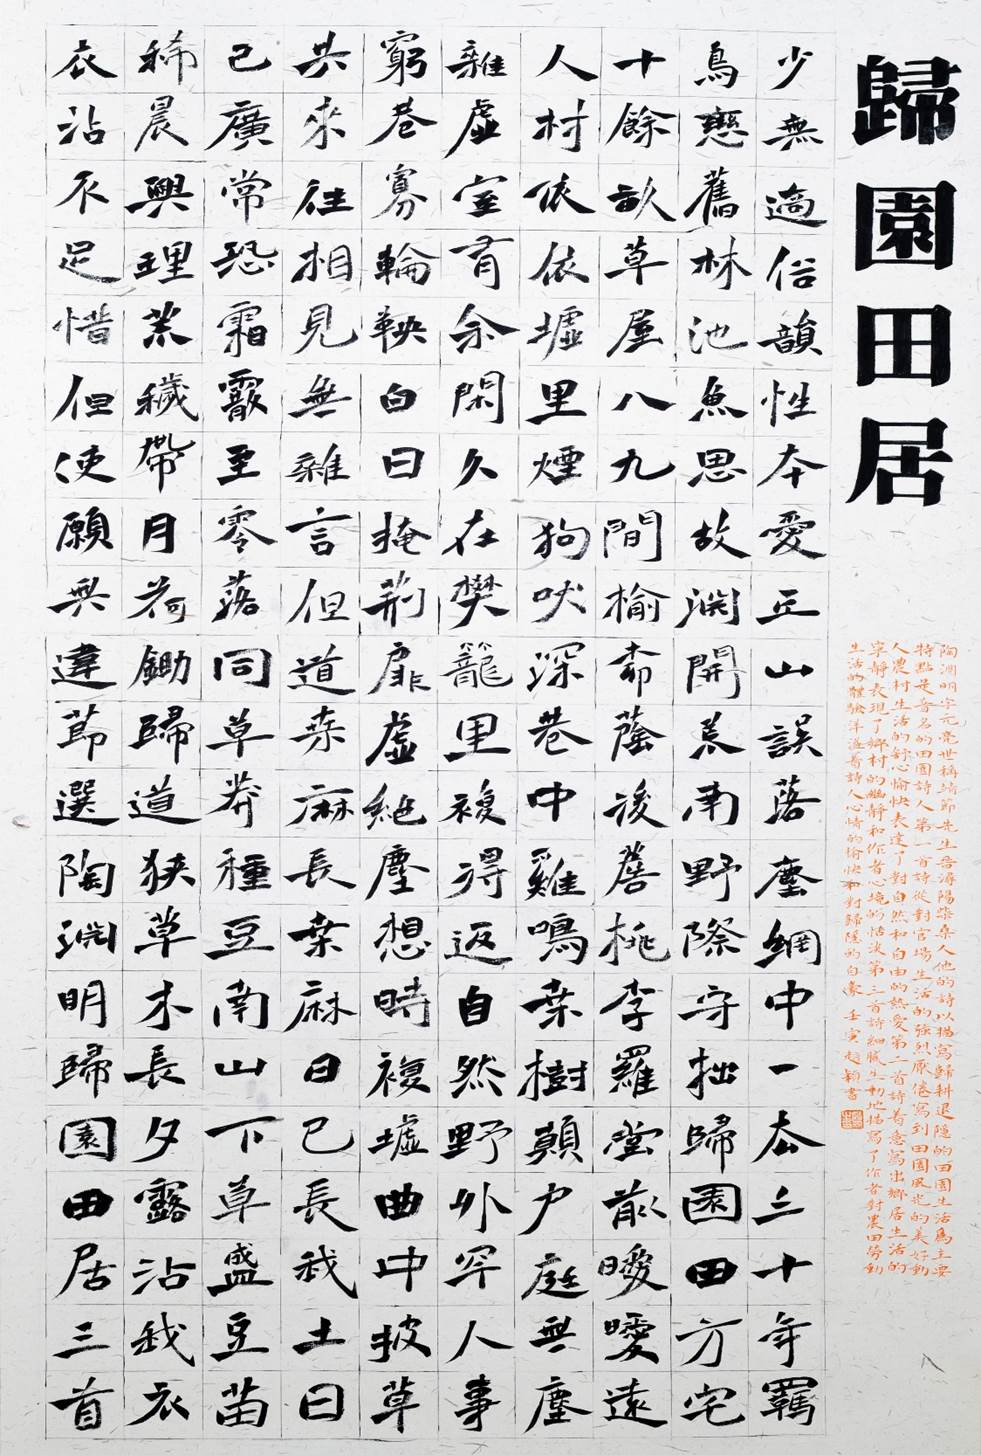 歸園田居
少無適俗韻性本愛丘山誤落塵網中一去三十年羈
鳥戀舊林池魚思故淵開荒南野際守拙歸園田方宅
十餘畝草屋八九間榆柳蔭後簷桃李羅堂前曖曖遠
人村依依墟里煙狗吠深巷中雞鳴桑樹顛戶庭無塵
雜虛室有余閑久在樊籠里複得返自然野外罕人事
窮巷寡輪鞅白日掩荊扉虛絕塵想時複墟曲中披草
共來往相見無雜言但道桑麻長桑麻日已長我土日
已廣常恐霜霰至零落同草莽種豆南山下草盛豆苗
稀晨興理荒穢帶月荷鋤歸道狹草木長夕露沾我衣
衣沾不足惜但使願無違節選陶淵明歸園田居三首
陶淵明字元亮世稱靖節先生晉潯陽柴桑人他的詩以描寫歸耕退隱的田園生活為主要
特點是著名的田園詩人第一首詩從對官場生活的強烈厭倦寫到田園風光的美好動
人農村生活的舒心愉快表達了對自然和自由的熱愛第二首詩著意寫出鄉居生活的
寧靜表現了鄉村的幽靜和作者心境的恬淡第三首詩細膩生動地描寫了作者對農田勞動
生活的體驗洋溢著詩人心情的愉快和對歸隱的自豪 壬寅趙穎書